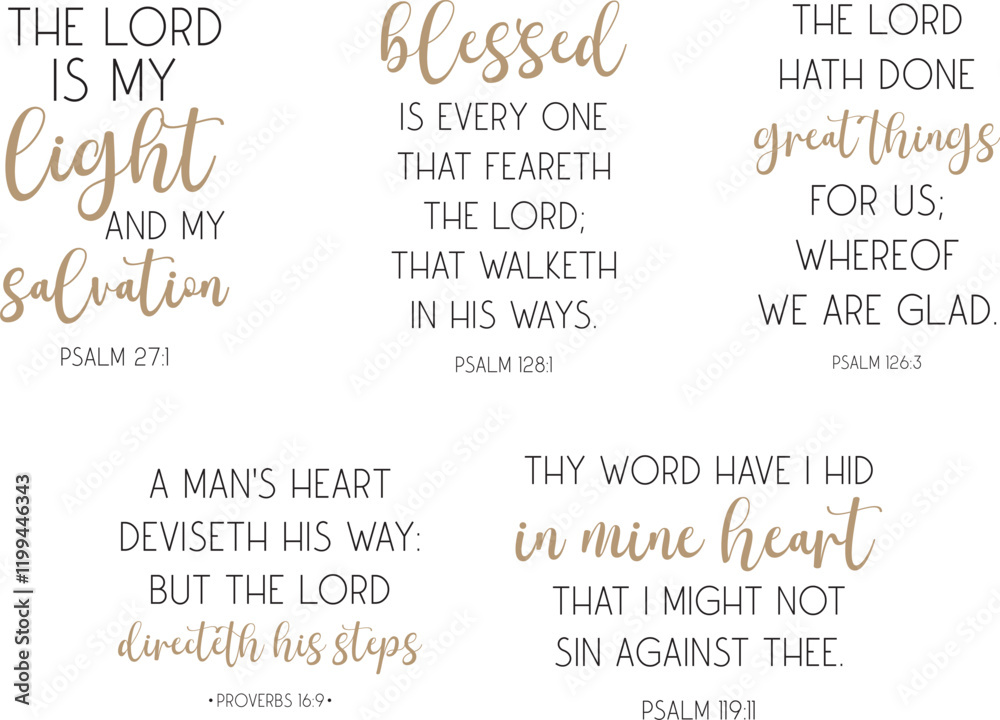 THE LORD
IS MY
light
AND MY
salvation
PSALM 27:1
blessed
IS EVERY ONE
THAT FEARETH
THE LORD;
THAT WALKETH
IN HIS WAYS.
PSALM 128:1
THE LORD
HATH DONE
great things
FOR US;
WHEREOF
WE ARE GLAD.
PSALM 126:3
A MAN'S HEART
DEVISETH HIS WAY:
BUT THE LORD
directeth his steps
•PROVERBS 16:9•
THY WORD HAVE I HID
in mine heart
THAT I MIGHT NOT
SIN AGAINST THEE.
PSALM 119:11
Adobe Stock | #1199446343